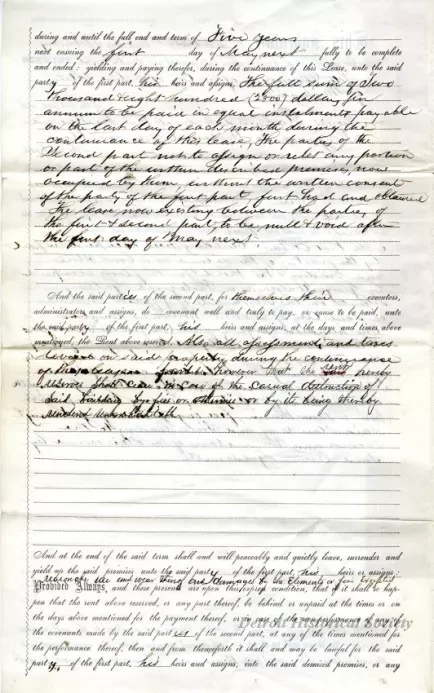 during and until the full end and term of Five years
next ensuing the first day of May next fully to be complete
and ended: yielding and paying therefor, during the continuance of this Lease, unto the said
party of the first part, his heirs and assigns, The full sum of Two
thousand & eight hundred (2800) dollars per
annum to be paid in equal instalments payable
on the last day of each month during the
continuance of this lease, The parties of the
Second part not to assign or relet any portion
or part of the within described premises, now
occupied by them, without the written consent
of the party of the first part, first had and obtained
The lease now existing between the parties of
the first & second part, to be null & void after
the first day of May next.
And the said parties of the second part, for themselves their executors,
administrators and assigns, do covenant well and truly to pay, or cause to be paid, unto
the said party of the first part, his heirs and assigns, at the days and times above
mentioned, the Rent above reserved, Also all assessments and taxes
levied on said property during the continuance
of however that the hereby
in case of the casual destruction of
said building by fire or otherwise or by its being thereby
rendered
And at the end of the said term shall and will peaceably and quietly leave, surrender and
yield up the said premises unto the said party of the first part, his heirs or assigns:
reasonable use and wear thereof and damages by the Elements or fire excepted
Provided Always, and these presents are upon this express condition, that if it shall hap-
pen that the rent above reserved, or any part thereof, be behind or unpaid at the times or on
the days above mentioned for the payment thereof, or in case of the non-performance of any of
the covenants made by the said parties of the second part, at any of the times mentioned for
the performance thereof, then and from thenceforth it shall and may be lawful for the said
party, of the first part, his heirs and assigns, into the said demised premises, or any
Detroit Historical Society